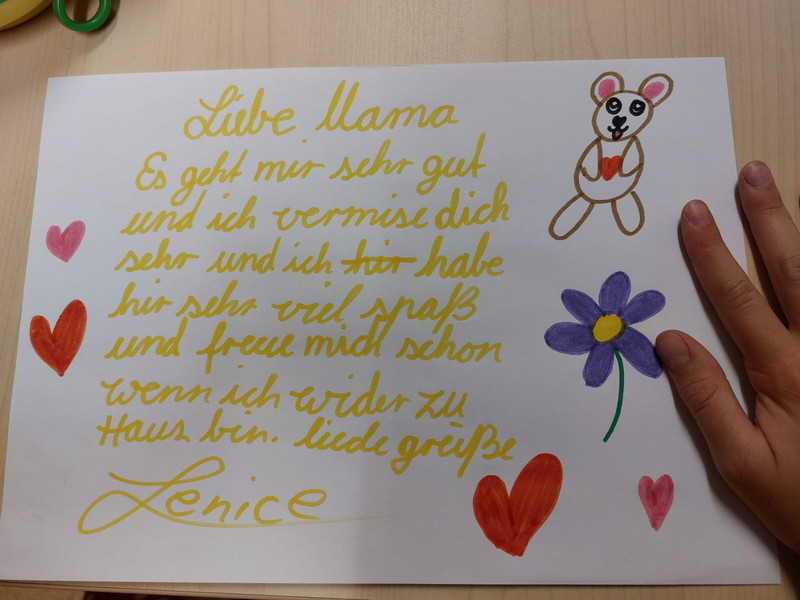 Liebe Mama
Es geht mir sehr gut
und ich vermise dich
sehr und ich hir habe
hir sehr viel spaß
und freue mich schon
wenn ich wider zu
Haus bin. liede greiße
Lenice